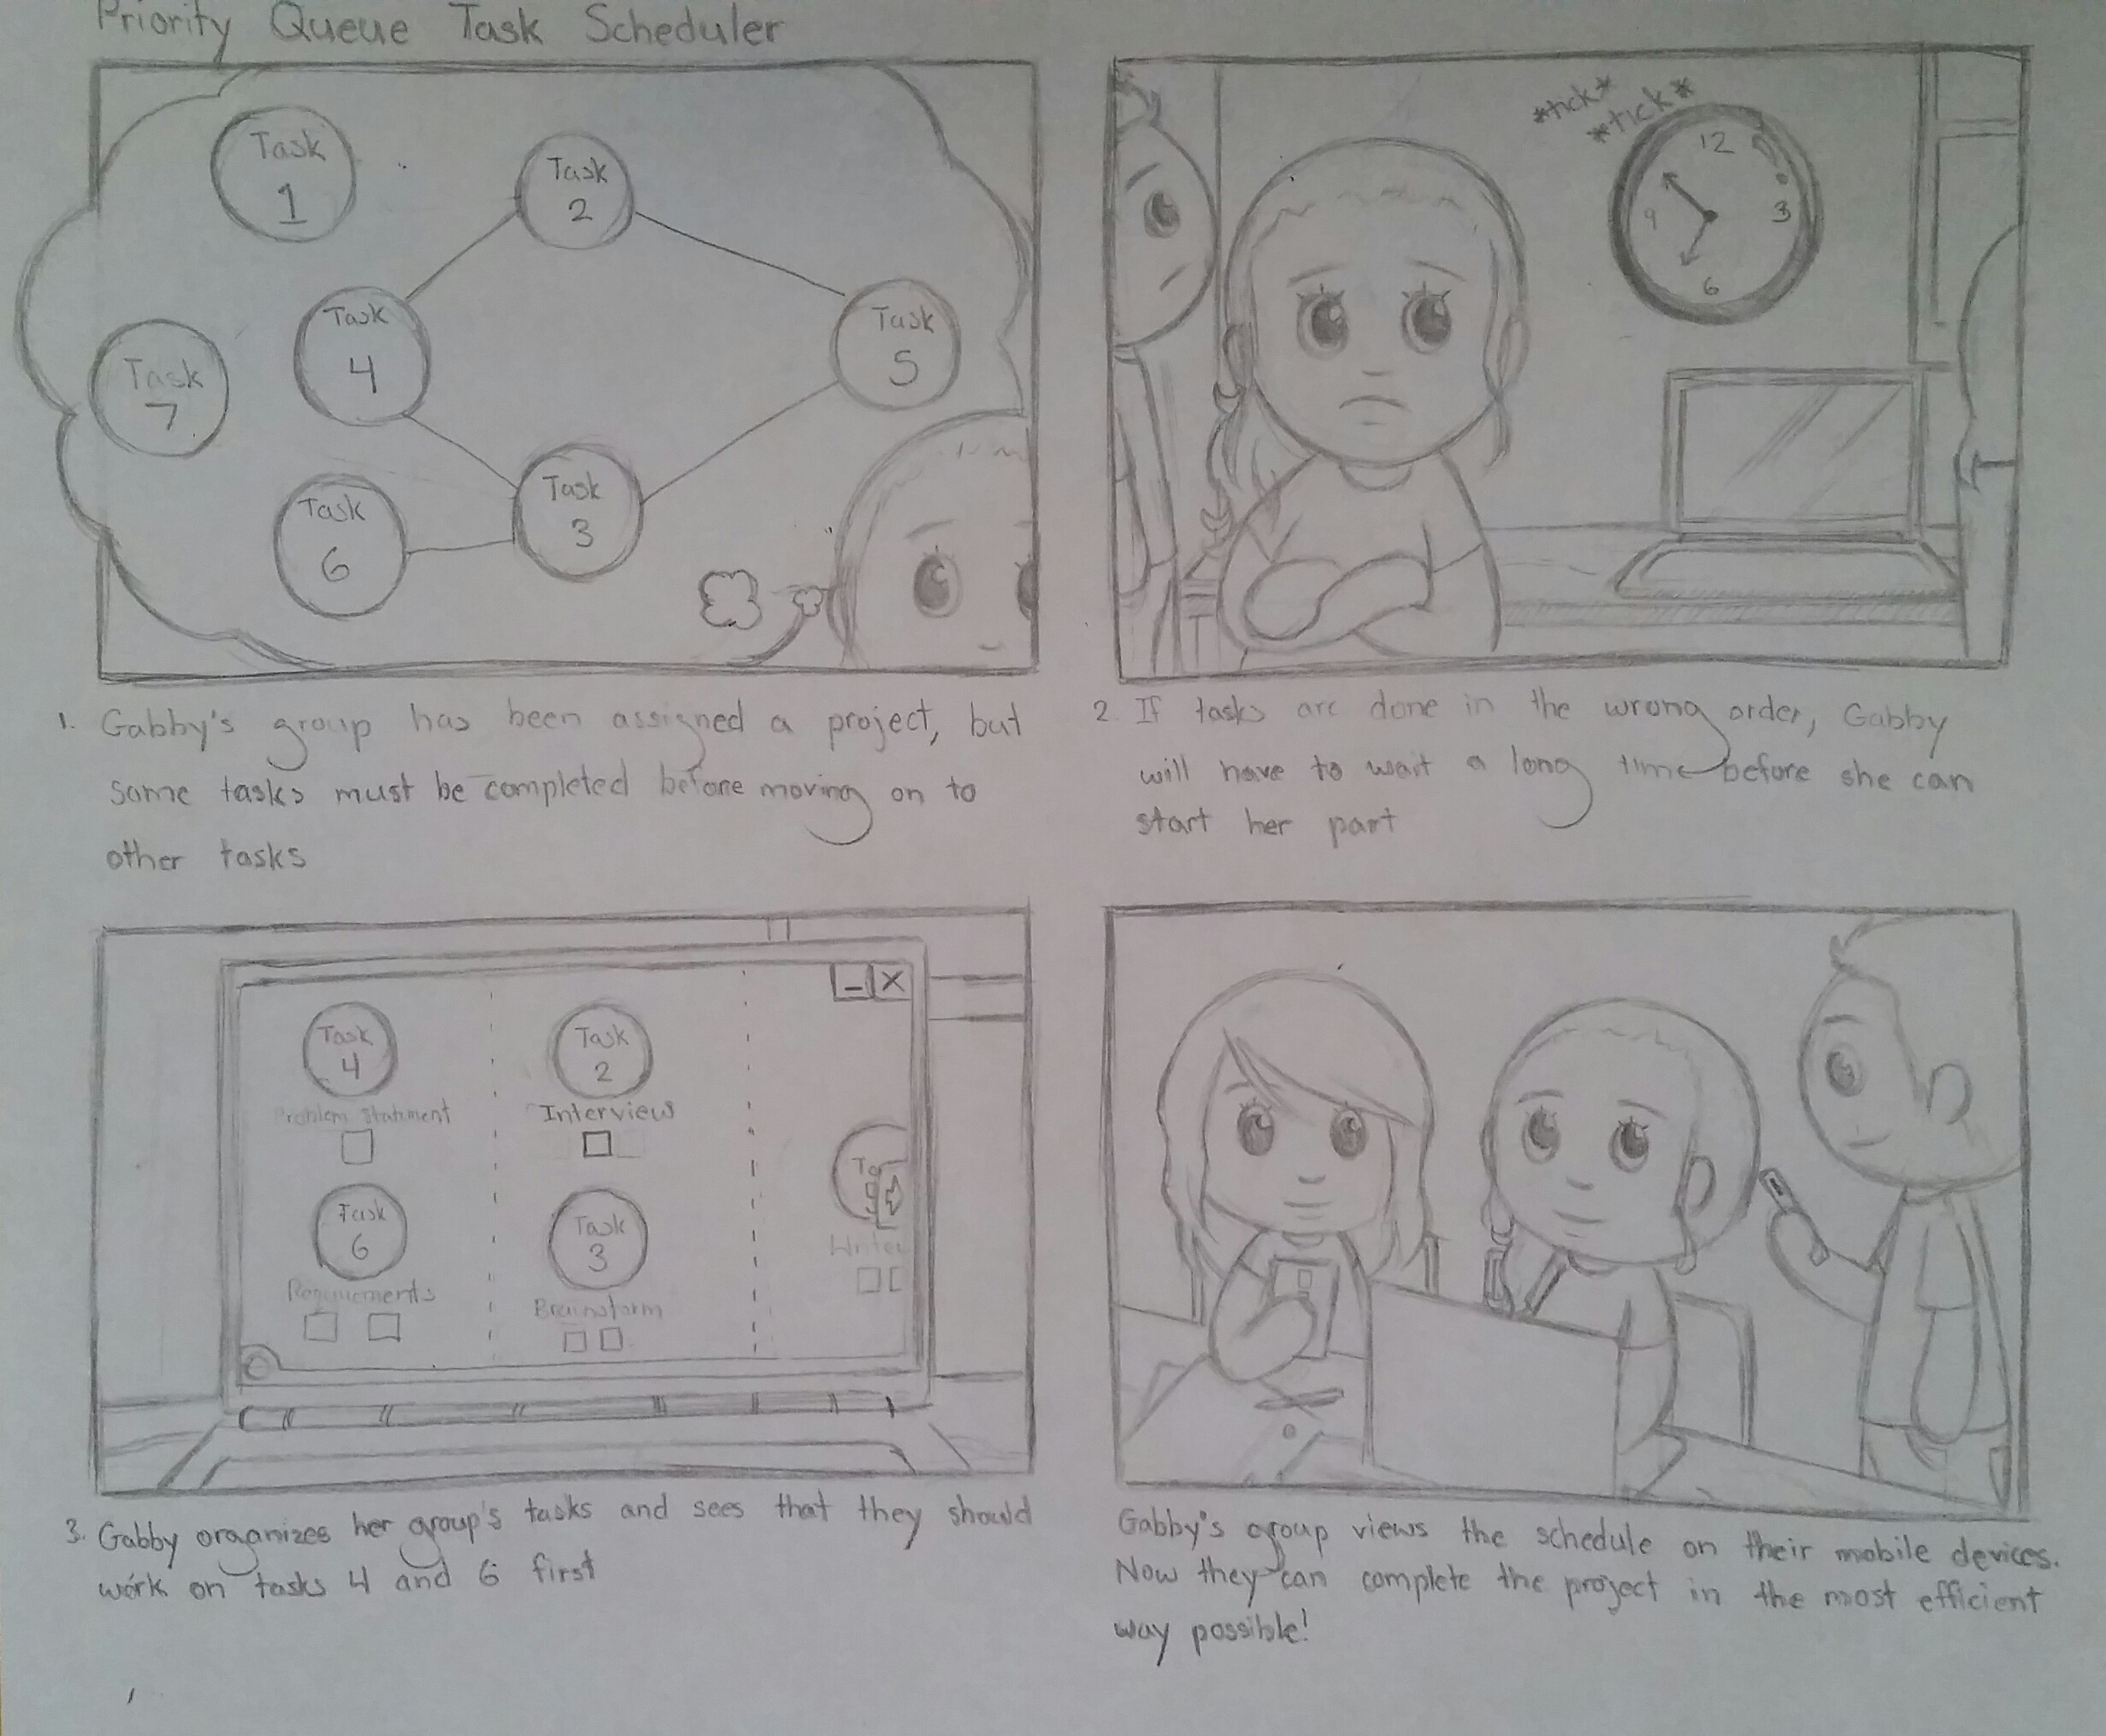 Priority Queue Task Scheduler
Task
1
Task
2
Task
4
Task
5
Task
7
Task
3
Task
6
*tick*
*tick*
12
9
3
6
1. Gabby's group has been assigned a project, but
some tasks must be completed before moving on to
other tasks
2. If tasks are done in the wrong order, Gabby
will have to wait a long time before she can
start her part
Task
4
Problem Statment
Task
2
Interview
Task
6
Requirements
Task
3
Brainstorm
3. Gabby organizes her group's tasks and sees that they should
work on tasks 4 and 6 first
Gabby's group views the schedule on their mobile devices.
Now they can complete the project in the most efficient
way possible!